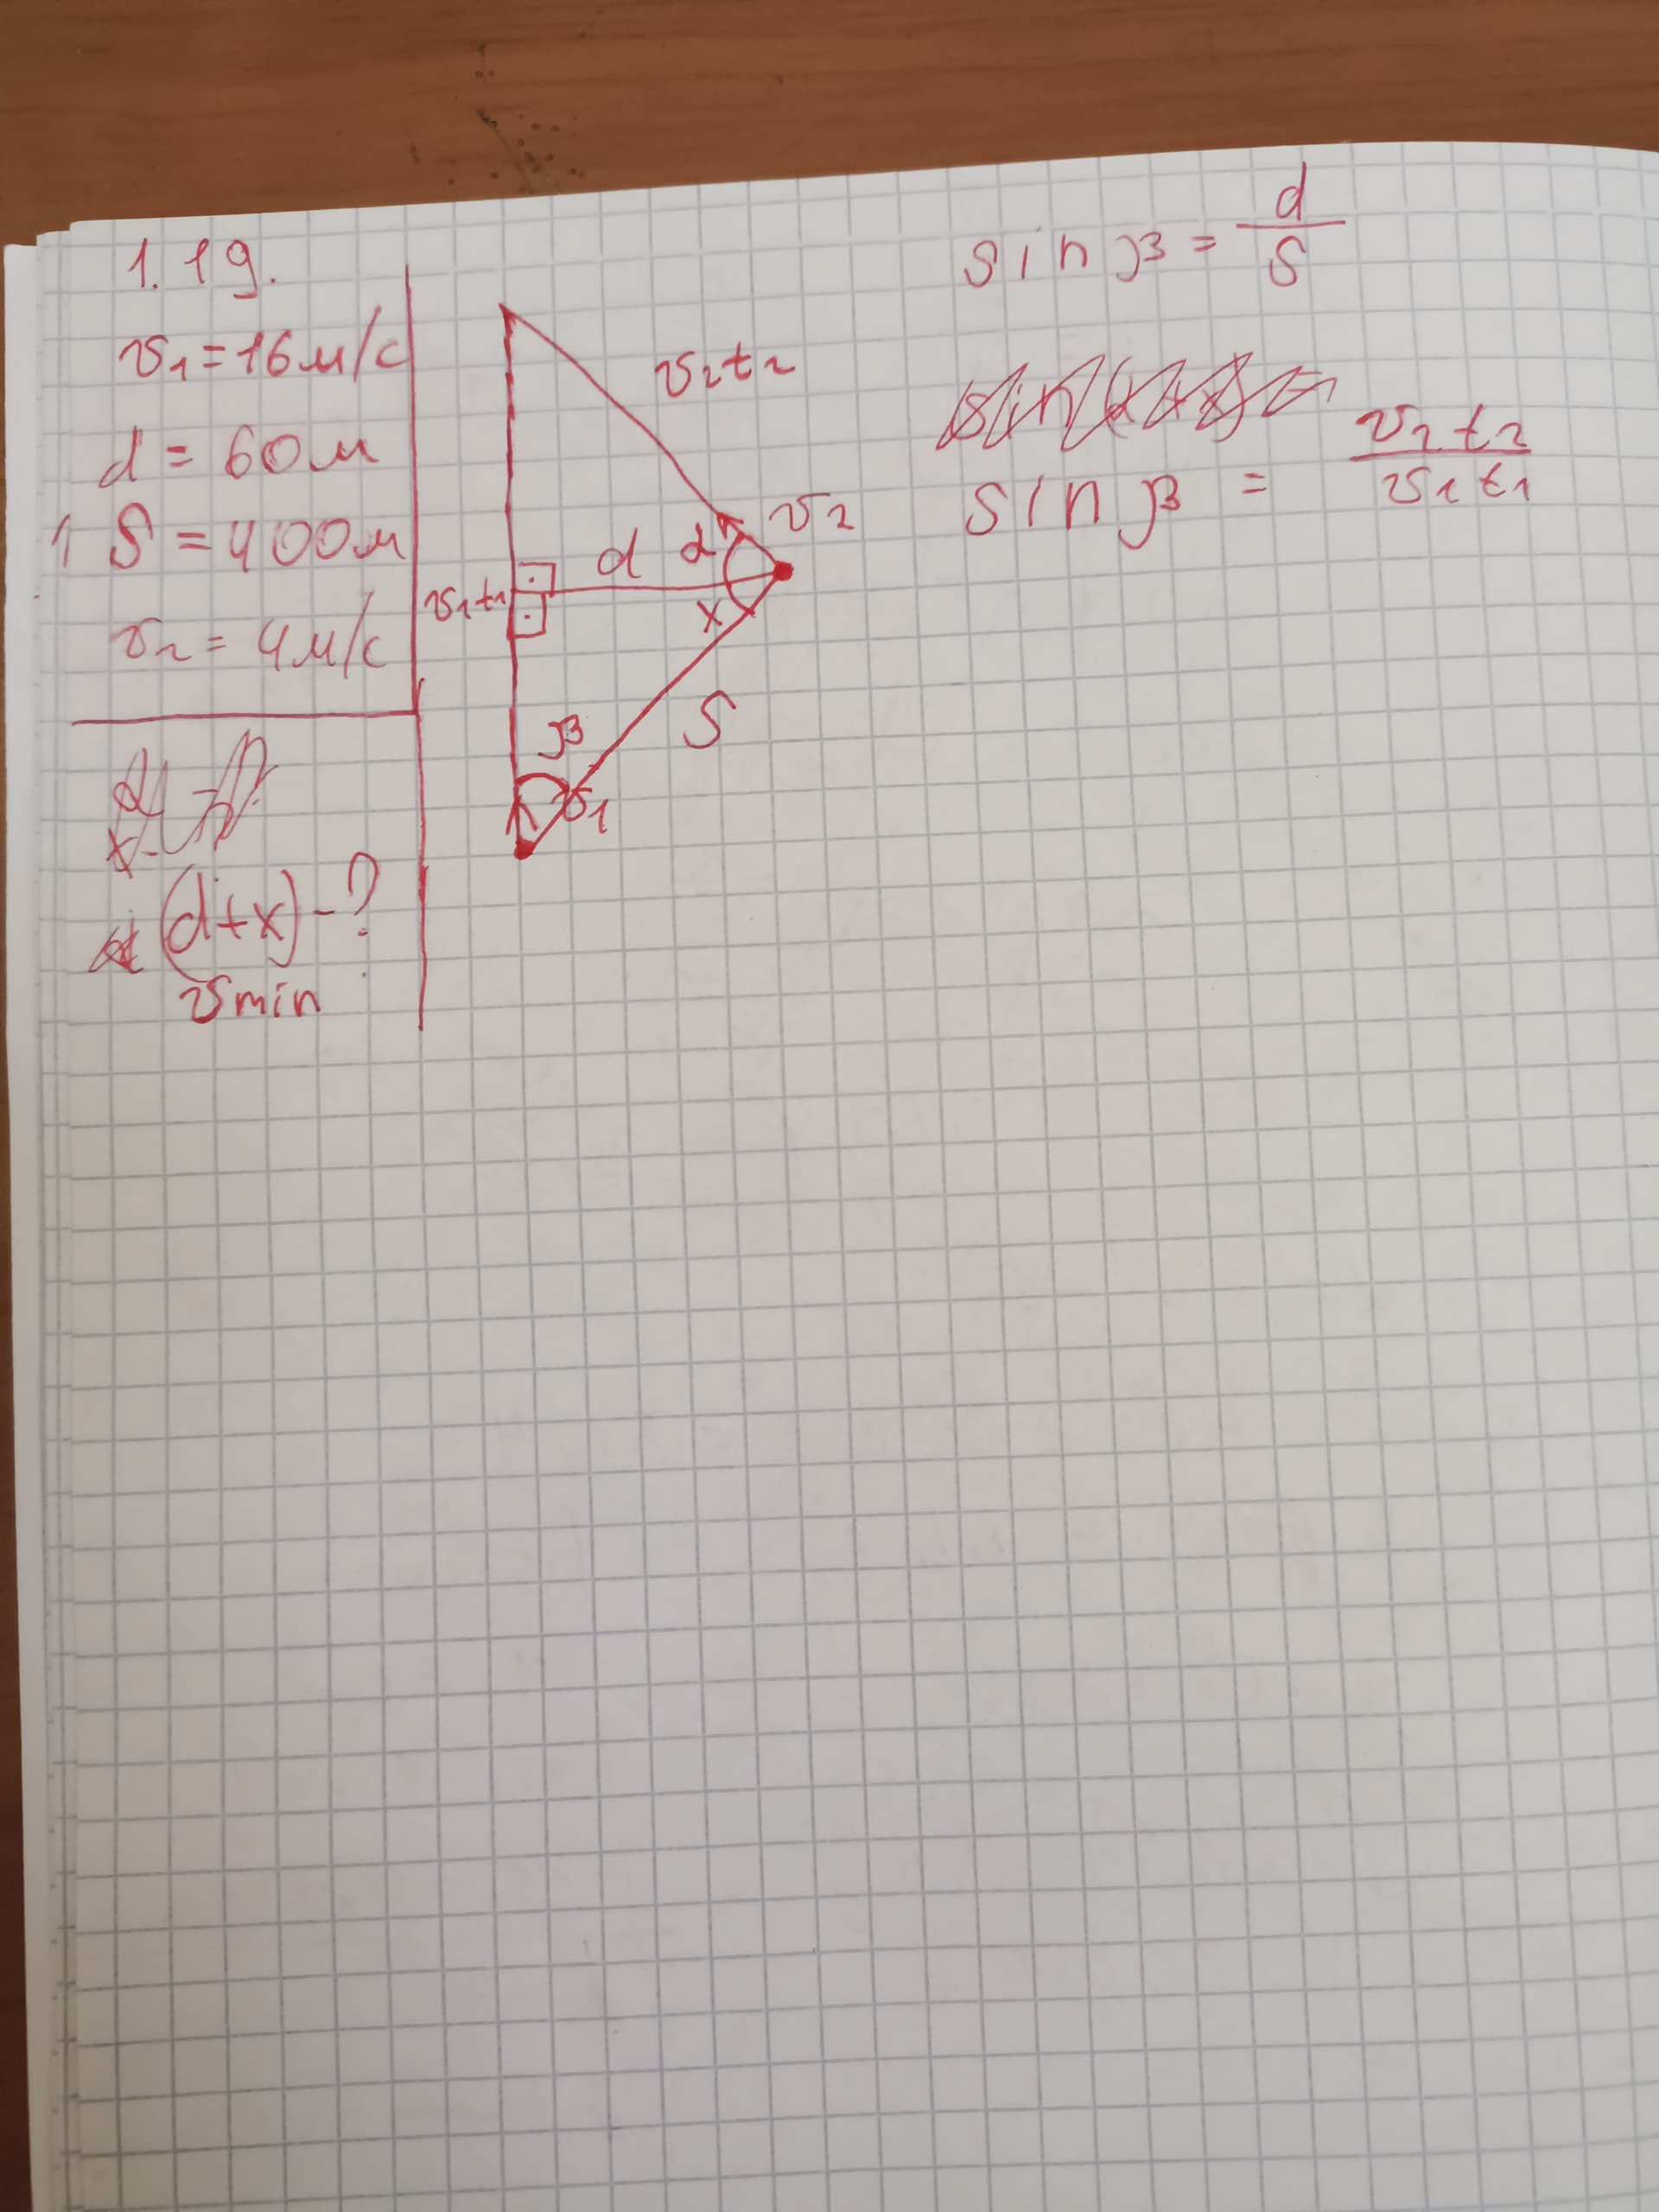 1.19.
v₁ = 16 м/с
d = 60 м
S = 400 м
v₂ = 4 м/с
(α+x) - ?
vmin
v₂t₂
v₂
d α
v₁t₁
x
S
β
v₁
sin β = d/S
sin β = v₂t₂/v₁t₁